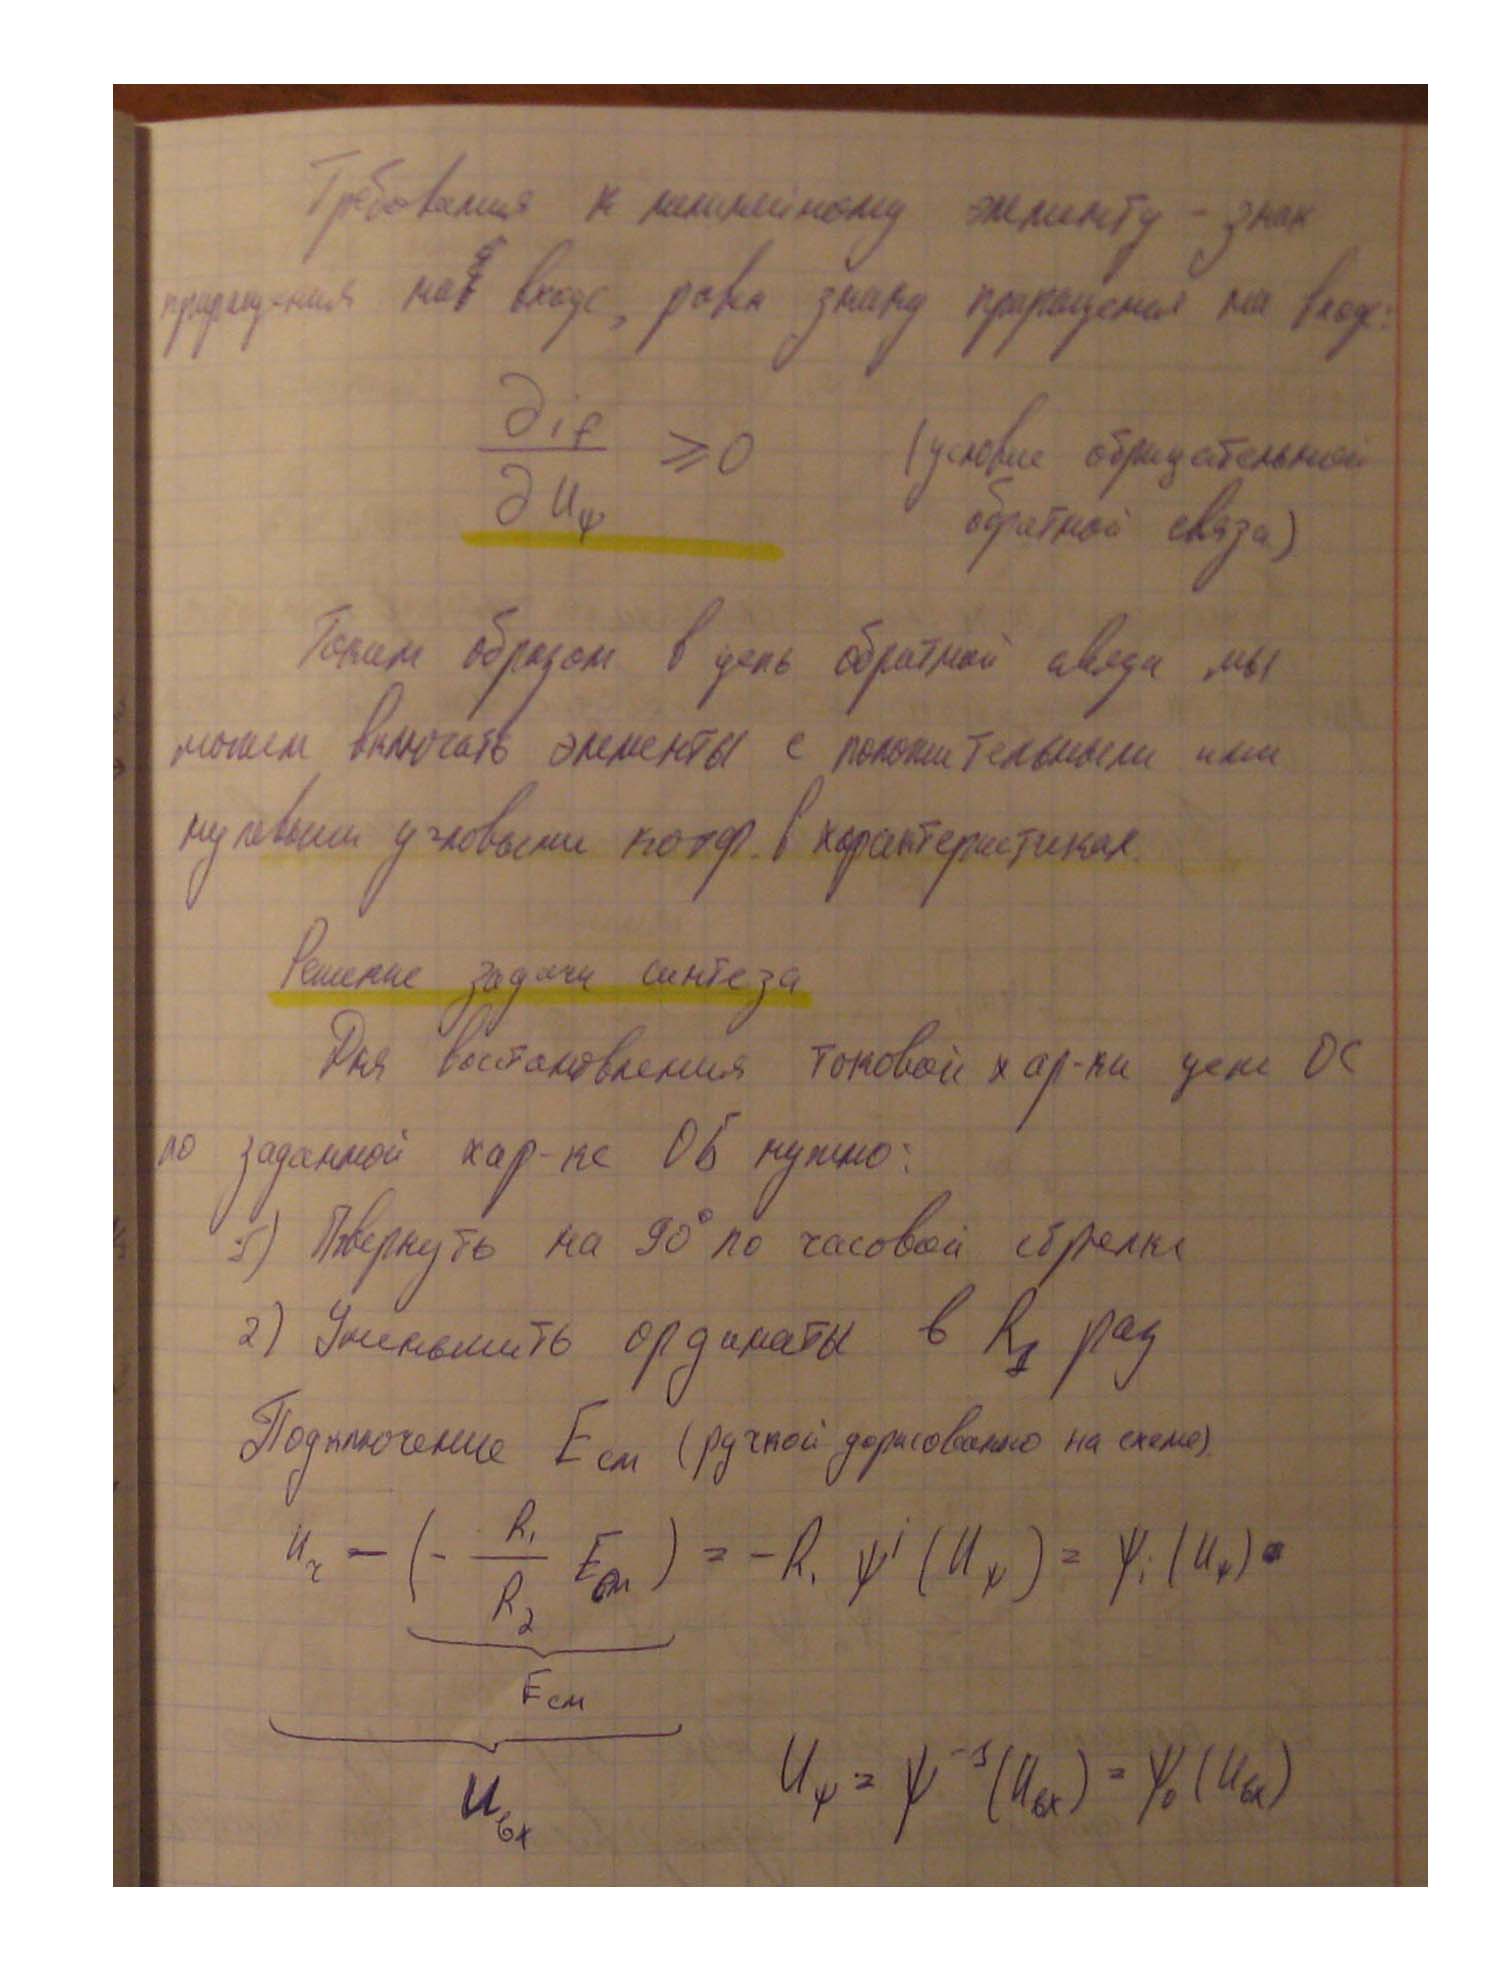 Требования к нелинейному элементу - знак
приращ-ния на входе, равен знаку приращения на входе:
∂i_f / ∂U_ψ ≥ 0 (условие обрицательной
обратной связа)
Таким образом в цепь обратной связи мы
можем включать элементы с положительными или
нулевыми угловыми коэф. в характеристиках.
Решение задачи синтеза
Для востановления токовой хар-ки цепи ОС
по заданной хар-ке ОБ нужно:
1) Повернуть на 90° по часовой стрелке
2) Уменьшить ординаты в R_1 раз
Подключение E_см (ручкой дорисованно на схеме)
U_r - (- R_1 / R_2 E_см) = -R_1 ψ^i (U_ψ) = ψ_i (U_ψ)
E_см
U_вх
U_ψ = ψ^-1 (U_вх) = ψ_0 (U_вх)